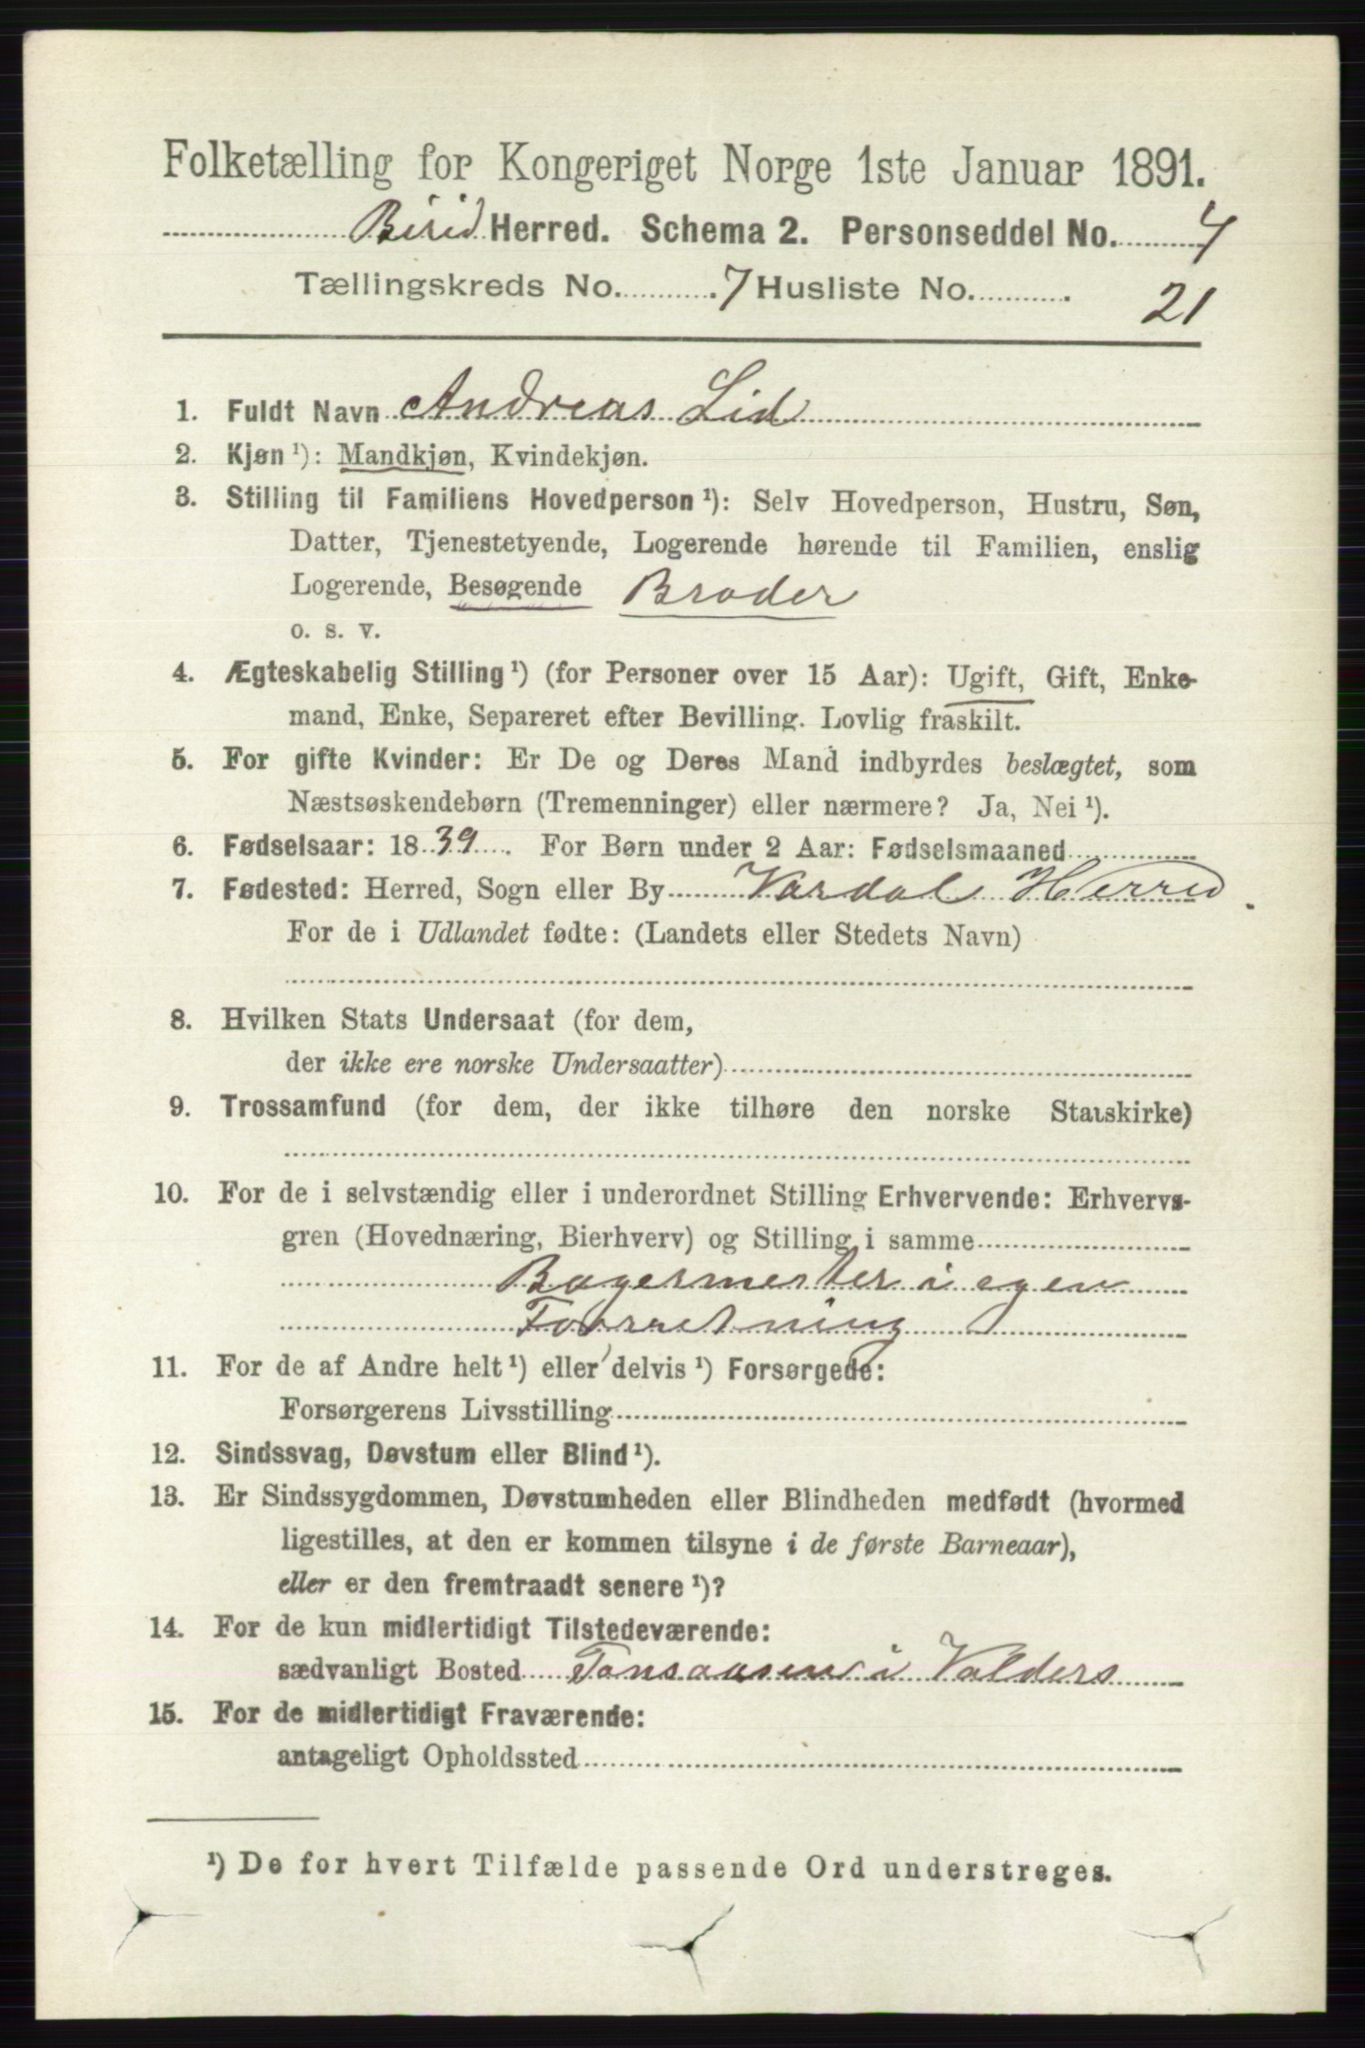 Folketælling for Kongeriget Norge 1ste Januar 1891.
Birid Herred. Schema 2. Personseddel No. 4
Tællingskreds No. 7 Husliste No. 21
1. Fuldt Navn Andreas Lid
2. Kjøn¹): Mandkjøn, Kvindekjøn.
3. Stilling til Familiens Hovedperson¹): Selv Hovedperson, Hustru, Søn,
Datter, Tjenestetyende, Logerende hørende til Familien, enslig
Logerende, Besøgende Broder
o. s. v.
4. Ægteskabelig Stilling¹) (for Personer over 15 Aar): Ugift, Gift, Enke-
mand, Enke, Separeret efter Bevilling. Lovlig fraskilt.
5. For gifte Kvinder: Er De og Deres Mand indbyrdes beslægtet, som
Næstsøskendebørn (Tremenninger) eller nærmere? Ja, Nei¹).
6. Fødselsaar: 1839. For Børn under 2 Aar: Fødselsmaaned
7. Fødested: Herred, Sogn eller By Vardal Herred.
For de i Udlandet fødte: (Landets eller Stedets Navn)
8. Hvilken Stats Undersaat (for dem,
der ikke ere norske Undersaatter)
9. Trossamfund (for dem, der ikke tilhøre den norske Statskirke)
10. For de i selvstændig eller i underordnet Stilling Erhvervende: Erhvervs-
gren (Hovednæring, Bierhverv) og Stilling i samme
Bagermester i egen
Forretning
11. For de af Andre helt¹) eller delvis¹) Forsørgede:
Forsørgerens Livsstilling
12. Sindssvag, Døvstum eller Blind¹).
13. Er Sindssygdommen, Døvstumheden eller Blindheden medfødt (hvormed
ligestilles, at den er kommen tilsyne i de første Barneaar),
eller er den fremtraadt senere¹)?
14. For de kun midlertidigt Tilstedeværende:
sædvanligt Bosted Tonsaasen i Valders
15. For de midlertidigt Fraværende:
antageligt Opholdssted
¹) De for hvert Tilfælde passende Ord understreges.